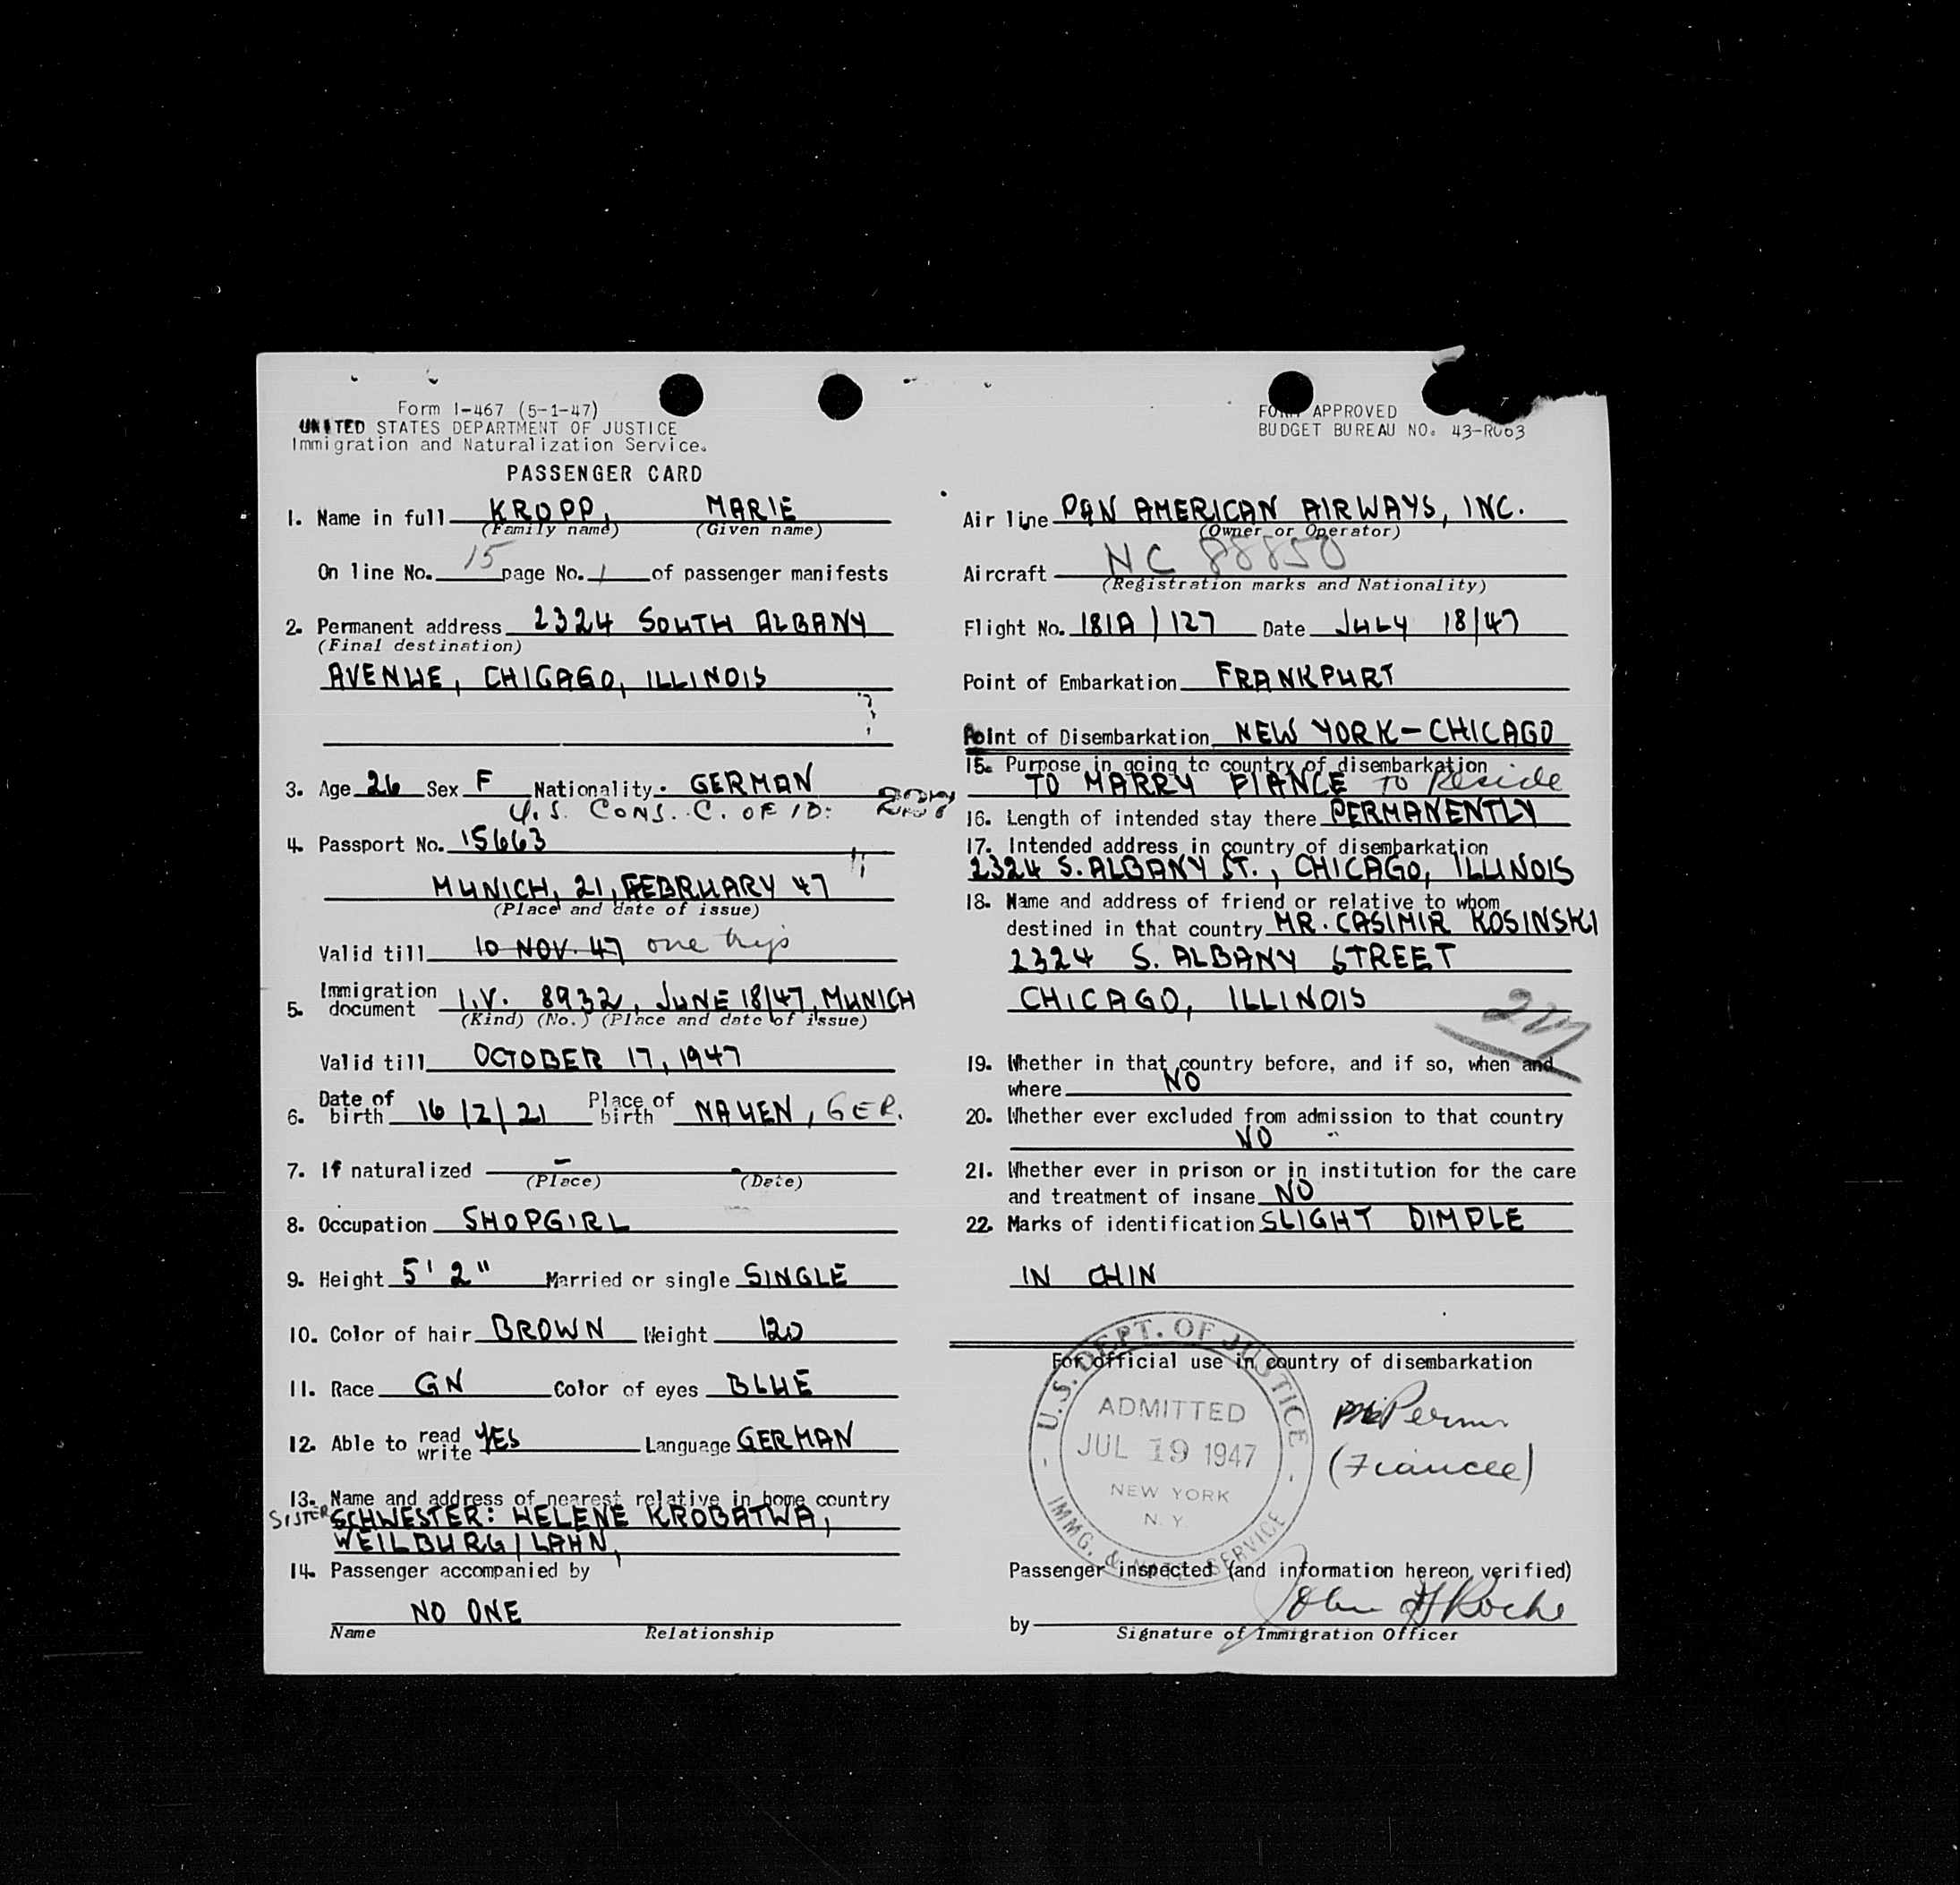 Form I-467 (5-1-47)
UNITED STATES DEPARTMENT OF JUSTICE
Immigration and Naturalization Service.
PASSENGER CARD
1. Name in full KROPP, MARIE
(Family name) (Given name)
On line No. 15 page No. 1 of passenger manifests
2. Permanent address 2324 SOUTH ALBANY
(Final destination)
AVENUE, CHICAGO, ILLINOIS
3. Age 26 Sex F Nationality. GERMAN
U.S. CONS. C. OF ID:
4. Passport No. 15663
MUNICH, 21, FEBRUARY 47
(Place and date of issue)
Valid till 10 NOV. 47 one trip
5. Immigration document I.V. 8932, JUNE 18/47, MUNICH
(Kind) (No.) (Place and date of issue)
Valid till OCTOBER 17, 1947
6. Date of birth 16/2/21 Place of birth NAUEN, GER.
7. If naturalized –
(Place) (Date)
8. Occupation SHOPGIRL
9. Height 5' 2" Married or single SINGLE
10. Color of hair BROWN Weight 120
11. Race GN Color of eyes BLUE
12. Able to read write YES Language GERMAN
13. Name and address of nearest relative in home country
SISTER SCHWESTER: HELENE KROBATWA,
WEILBURG/LAHN,
14. Passenger accompanied by
NO ONE
Name Relationship
FORM APPROVED
BUDGET BUREAU NO. 43-R063
Air line PAN AMERICAN AIRWAYS, INC.
(Owner or Operator)
Aircraft NC 88850
(Registration marks and Nationality)
Flight No. 181A/127 Date JULY 18/47
Point of Embarkation FRANKFURT
Point of Disembarkation NEW YORK-CHICAGO
15. Purpose in going to country of disembarkation
TO MARRY FIANCE TO Reside
16. Length of intended stay there PERMANENTLY
17. Intended address in country of disembarkation
2324 S. ALBANY ST., CHICAGO, ILLINOIS
18. Name and address of friend or relative to whom
destined in that country MR. CASIMIR KOSINSKI
2324 S. ALBANY STREET
CHICAGO, ILLINOIS
19. Whether in that country before, and if so, when and
where NO
20. Whether ever excluded from admission to that country
NO
21. Whether ever in prison or in institution for the care
and treatment of insane NO
22. Marks of identification SLIGHT DIMPLE
IN CHIN
For official use in country of disembarkation
U.S. DEPT. OF JUSTICE
ADMITTED
JUL 19 1947
NEW YORK
N.Y
IMMG. & NATZ. SERVICE
Perm
(Fiancee)
Passenger inspected (and information hereon verified)
by John H Roche
Signature of Immigration Officer